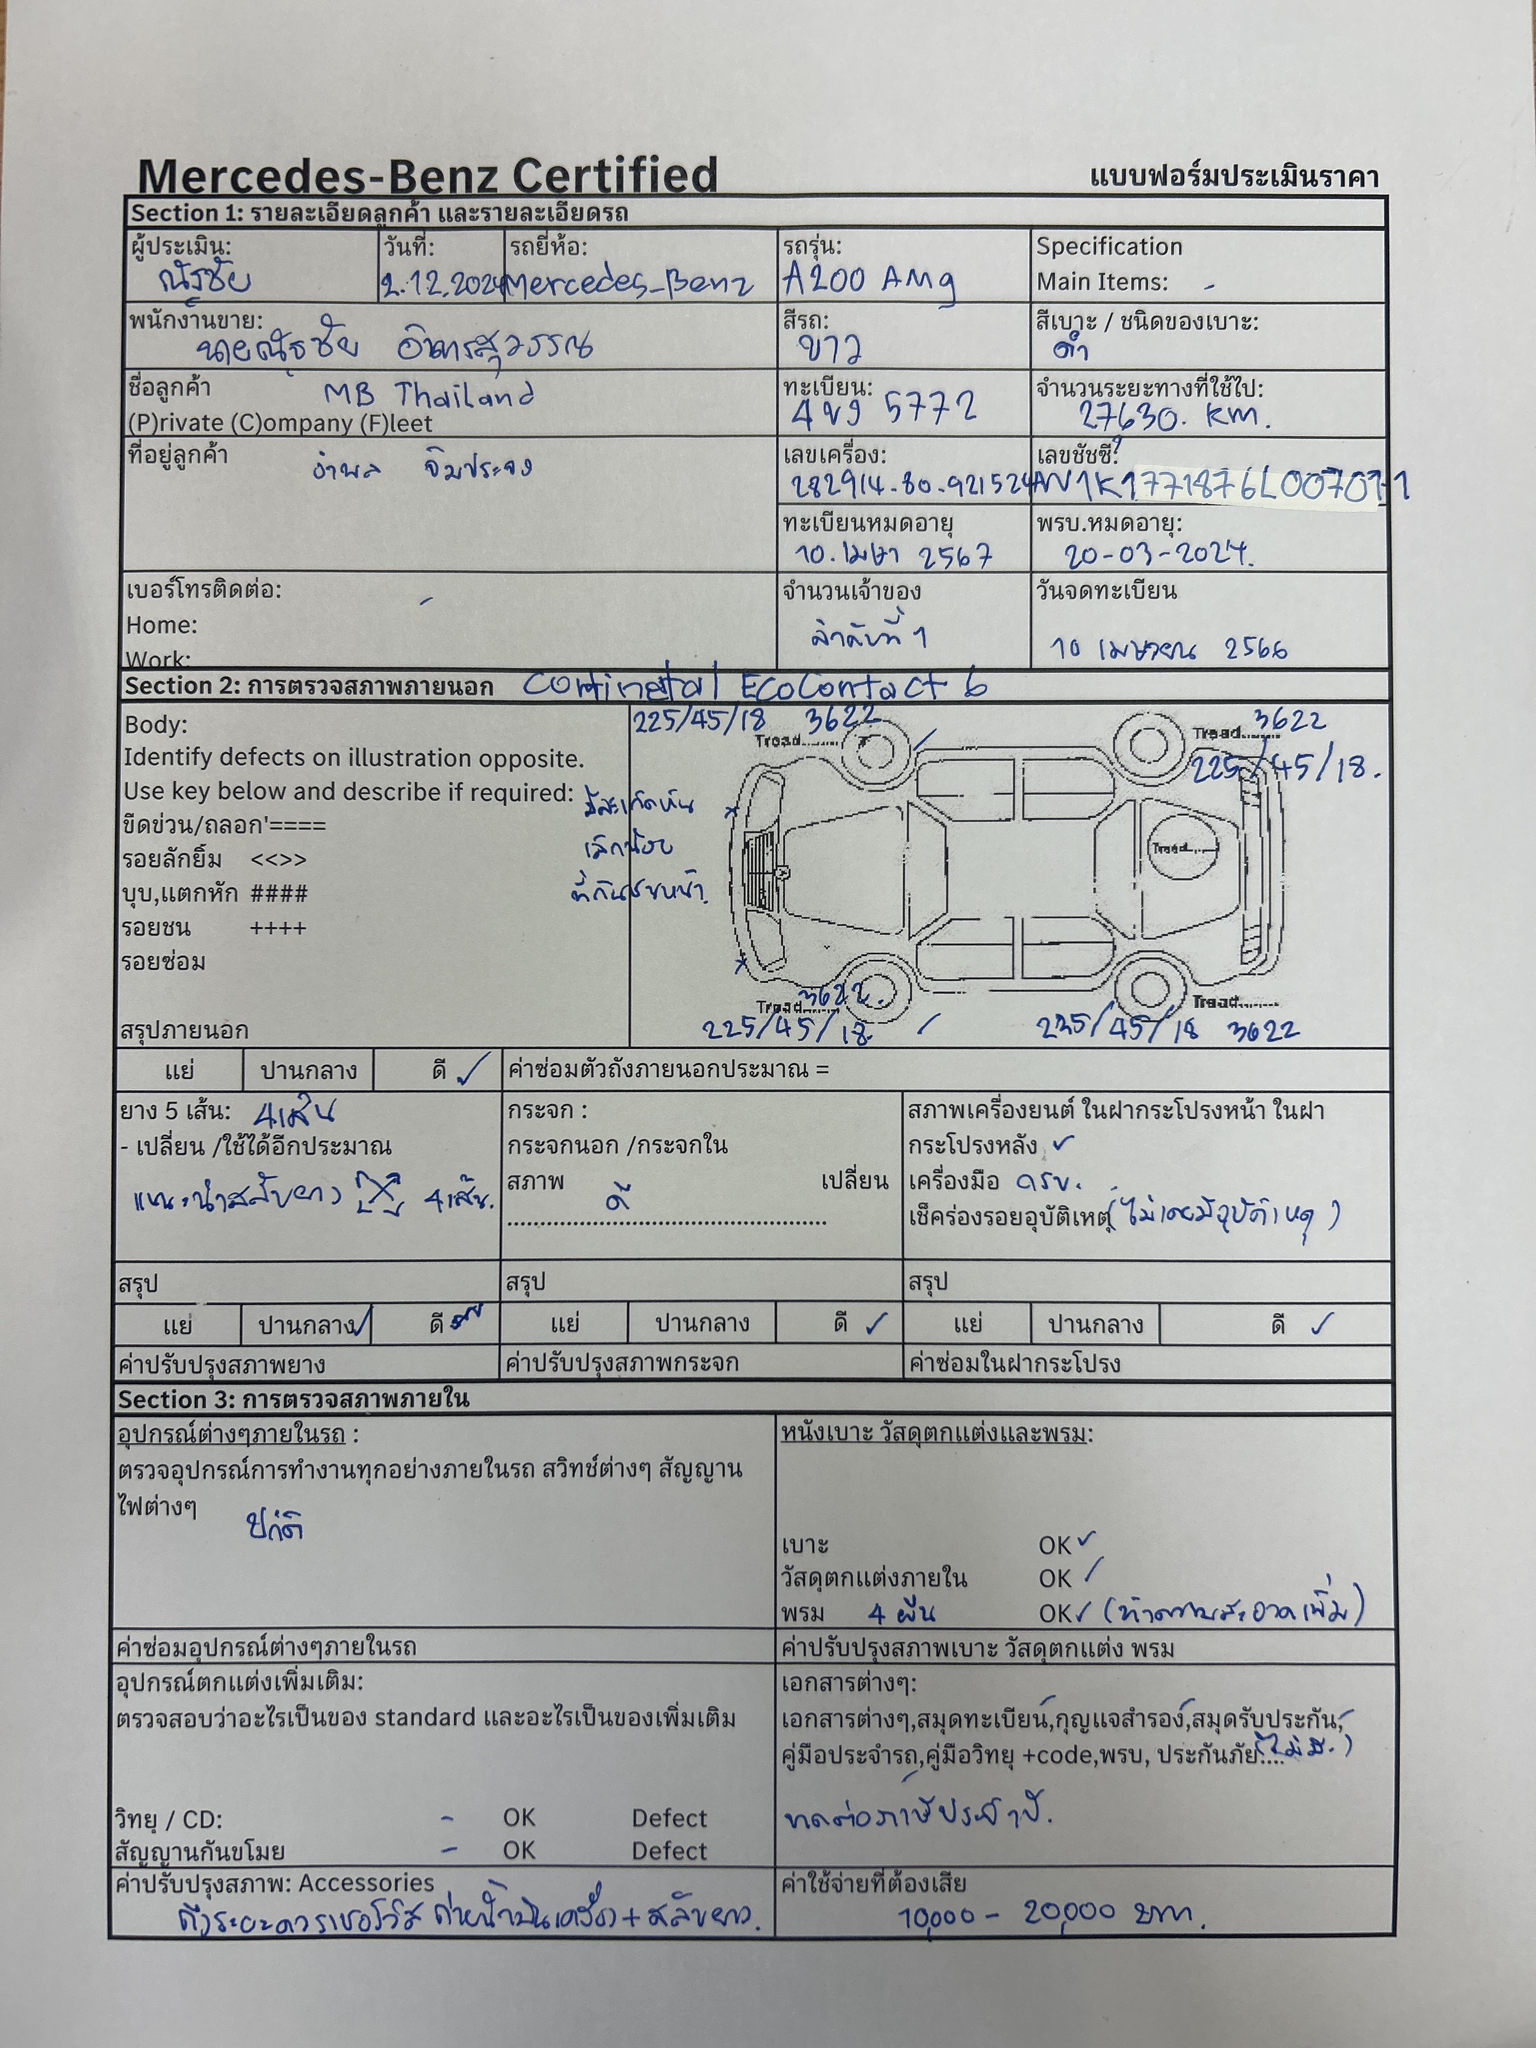 Mercedes-Benz Certified
แบบฟอร์มประเมินราคา
Section 1: รายละเอียดลูกค้า และรายละเอียดรถ
ผู้ประเมิน: ณัฐชัย
วันที่: 2.12.2024
รถยี่ห้อ: Mercedes-Benz
รถรุ่น: A200 AMG
Specification
Main Items: -
พนักงานขาย: นายณัฐชัย อินทรสุวรรณ
สีรถ: ขาว
สีเบาะ / ชนิดของเบาะ: ดำ
ชื่อลูกค้า MB Thailand
(P)rivate (C)ompany (F)leet
ทะเบียน: 4ขง 5772
จำนวนระยะทางที่ใช้ไป: 27630. km.
ที่อยู่ลูกค้า อำพล
เลขเครื่อง: 282914-80-921524
เลขชัชซี: W1K1771876L007071
ทะเบียนหมดอายุ 10.เมษา 2567
พรบ.หมดอายุ: 20-03-2024.
เบอร์โทรติดต่อ: -
Home:
Work:
จำนวนเจ้าของ ลำดับที่ 1
วันจดทะเบียน 10 เมษายน 2566
Section 2: การตรวจสภาพภายนอก Continetal EcoContact 6
Body:
Identify defects on illustration opposite.
Use key below and describe if required:
ขีดข่วน/ถลอก'====
รอยลักยิ้ม <<>>
บุบ,แตกหัก ####
รอยชน ++++
รอยซ่อม
สรุปภายนอก
225/45/18 3622
Tread
3622
Tread
225/45/18.
มีสะเก็ดหิน
เล็กน้อย
ที่กันชนหน้า.
Tread
3622.
Tread
225/45/18
Tread
225/45/18 3622
แย่ ปานกลาง ดี ✓
ค่าซ่อมตัวถังภายนอกประมาณ =
ยาง 5 เส้น: 4เส้น
- เปลี่ยน /ใช้ได้อีกประมาณ
แนะนำสลับยาง 4เส้น.
กระจก :
กระจกนอก /กระจกใน
สภาพ ดี เปลี่ยน
สภาพเครื่องยนต์ ในฝากระโปรงหน้า ในฝา
กระโปรงหลัง ✓
เครื่องมือ ครบ.
เช็คร่องรอยอุบัติเหตุ (ไม่เคยมีอุบัติเหตุ)
สรุป
สรุป
สรุป
แย่ ปานกลาง ✓ ดี
แย่ ปานกลาง ดี ✓
แย่ ปานกลาง ดี ✓
ค่าปรับปรุงสภาพยาง
ค่าปรับปรุงสภาพกระจก
ค่าซ่อมในฝากระโปรง
Section 3: การตรวจสภาพภายใน
อุปกรณ์ต่างๆภายในรถ :
ตรวจอุปกรณ์การทำงานทุกอย่างภายในรถ สวิทช์ต่างๆ สัญญาน
ไฟต่างๆ
ปกติ
หนังเบาะ วัสดุตกแต่งและพรม:
เบาะ OK ✓
วัสดุตกแต่งภายใน OK ✓
พรม 4 ผืน OK ✓ (ทำความสะอาดเพิ่ม)
ค่าซ่อมอุปกรณ์ต่างๆภายในรถ
ค่าปรับปรุงสภาพเบาะ วัสดุตกแต่ง พรม
อุปกรณ์ตกแต่งเพิ่มเติม:
ตรวจสอบว่าอะไรเป็นของ standard และอะไรเป็นของเพิ่มเติม
วิทยุ / CD: - OK Defect
สัญญานกันขโมย - OK Defect
เอกสารต่างๆ:
เอกสารต่างๆ,สมุดทะเบียน,กุญแจสำรอง,สมุดรับประกัน,
คู่มือประจำรถ,คู่มือวิทยุ +code,พรบ, ประกันภัย.... (ไม่มี.)
ขาดต่อภาษีประจำปี.
ค่าปรับปรุงสภาพ: Accessories
ถึงระยะควรเซอร์วิส ถ่ายน้ำมันเครื่อง + สลับยาง.
ค่าใช้จ่ายที่ต้องเสีย
10,000 - 20,000 บาท.